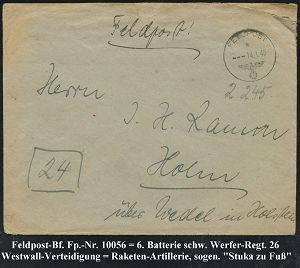 Feldpost!
FELDPOST
14.1.45
2 245
Herrn
J. H. Ramon
24
Holm
über Wedel in Holstein
Feldpost-Bf. Fp.-Nr. 10056 = 6. Batterie schw. Werfer-Regt. 26
Westwall-Verteidigung = Raketen-Artillerie, sogen. "Stuka zu Fuß"